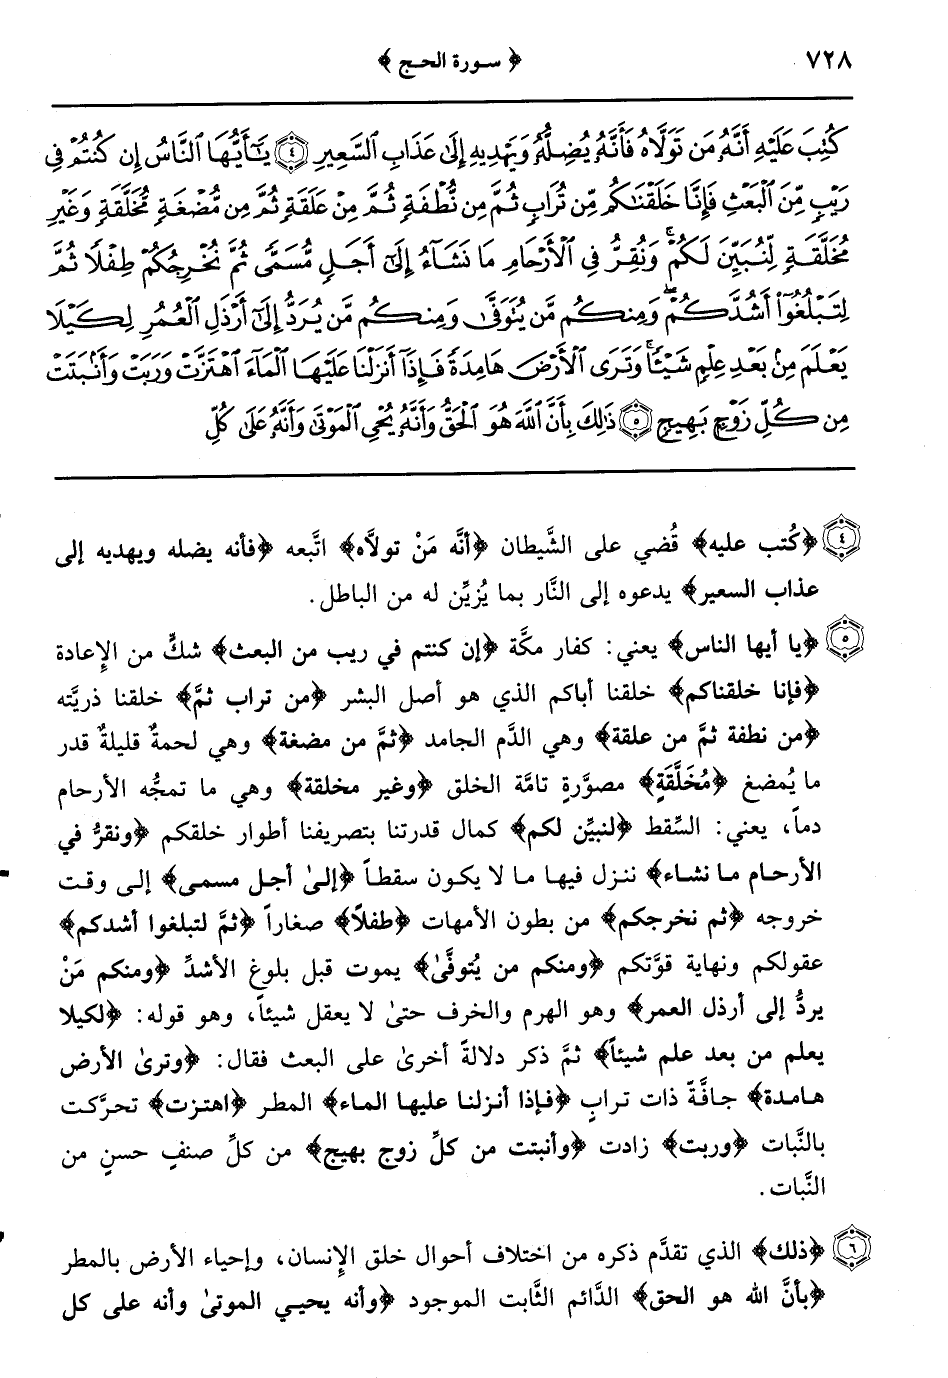 ٧٢٨
﴿ سورة الحج ﴾
كُتِبَ عَلَيْهِ أَنَّهُ مَن تَوَلَّاهُ فَأَنَّهُ يُضِلُّهُ وَيَهْدِيهِ إِلَىٰ عَذَابِ ٱلسَّعِيرِ ﴿٤﴾ يَٰٓأَيُّهَا ٱلنَّاسُ إِن كُنتُمْ فِى
رَيْبٍ مِّنَ ٱلْبَعْثِ فَإِنَّا خَلَقْنَٰكُم مِّن تُرَابٍ ثُمَّ مِن نُّطْفَةٍ ثُمَّ مِنْ عَلَقَةٍ ثُمَّ مِن مُّضْغَةٍ مُّخَلَّقَةٍ وَغَيْرِ
مُخَلَّقَةٍ لِّنُبَيِّنَ لَكُمْ ۚ وَنُقِرُّ فِى ٱلْأَرْحَامِ مَا نَشَآءُ إِلَىٰٓ أَجَلٍ مُّسَمًّى ثُمَّ نُخْرِجُكُمْ طِفْلًا ثُمَّ
لِتَبْلُغُوٓا۟ أَشُدَّكُمْ ۖ وَمِنكُم مَّن يُتَوَفَّىٰ وَمِنكُم مَّن يُرَدُّ إِلَىٰٓ أَرْذَلِ ٱلْعُمُرِ لِكَيْلَا
يَعْلَمَ مِنۢ بَعْدِ عِلْمٍ شَيْـًٔا ۚ وَتَرَى ٱلْأَرْضَ هَامِدَةً فَإِذَآ أَنزَلْنَا عَلَيْهَا ٱلْمَآءَ ٱهْتَزَّتْ وَرَبَتْ وَأَنۢبَتَتْ
مِن كُلِّ زَوْجٍۭ بَهِيجٍ ﴿٥﴾ ذَٰلِكَ بِأَنَّ ٱللَّهَ هُوَ ٱلْحَقُّ وَأَنَّهُۥ يُحْىِ ٱلْمَوْتَىٰ وَأَنَّهُۥ عَلَىٰ كُلِّ
٤ ﴿كُتب عليه﴾ قُضي على الشَّيطان ﴿أنَّه مَنْ تولاَّه﴾ اتَّبعه ﴿فأنه يضله ويهديه إلى
عذاب السعير﴾ يدعوه إلى النَّار بما يُزيِّن له من الباطل.
٥ ﴿يا أيها الناس﴾ يعني: كفار مكَّة ﴿إن كنتم في ريب من البعث﴾ شكٍّ من الإِعادة
﴿فإنا خلقناكم﴾ خلقنا أباكم الذي هو أصل البشر ﴿من تراب ثمَّ﴾ خلقنا ذريَّته
﴿من نطفة ثمَّ من علقة﴾ وهي الدَّم الجامد ﴿ثمَّ من مضغة﴾ وهي لحمةٌ قليلةٌ قدر
ما يُمضغ ﴿مُخَلَّقَةٍ﴾ مصوَّرةٍ تامَّة الخلق ﴿وغير مخلقة﴾ وهي ما تمجُّه الأرحام
دماً، يعني: السِّقط ﴿لنبيِّن لكم﴾ كمال قدرتنا بتصريفنا أطوار خلقكم ﴿ونقرُّ في
الأرحام ما نشاء﴾ ننزل فيها ما لا يكون سقطاً ﴿إلىٰ أجل مسمى﴾ إلى وقت
خروجه ﴿ثم نخرجكم﴾ من بطون الأمهات ﴿طفلاً﴾ صغاراً ﴿ثمَّ لتبلغوا أشدكم﴾
عقولكم ونهاية قوَّتكم ﴿ومنكم من يُتوفَّىٰ﴾ يموت قبل بلوغ الأشدِّ ﴿ومنكم مَنْ
يردُّ إلى أرذل العمر﴾ وهو الهرم والخرف حتىٰ لا يعقل شيئاً، وهو قوله: ﴿لكيلا
يعلم من بعد علم شيئاً﴾ ثمَّ ذكر دلالةً أخرىٰ على البعث فقال: ﴿وترىٰ الأرض
هامدة﴾ جافَّةً ذات ترابٍ ﴿فإذا أنزلنا عليها الماء﴾ المطر ﴿اهتزت﴾ تحرَّكت
بالنَّبات ﴿وربت﴾ زادت ﴿وأنبتت من كلِّ زوج بهيج﴾ من كلِّ صنفٍ حسنٍ من
النَّبات.
٦ ﴿ذلك﴾ الذي تقدَّم ذكره من اختلاف أحوال خلق الإِنسان، وإحياء الأرض بالمطر
﴿بأنَّ الله هو الحق﴾ الدَّائم الثَّابت الموجود ﴿وأنه يحيي الموتىٰ وأنه على كل